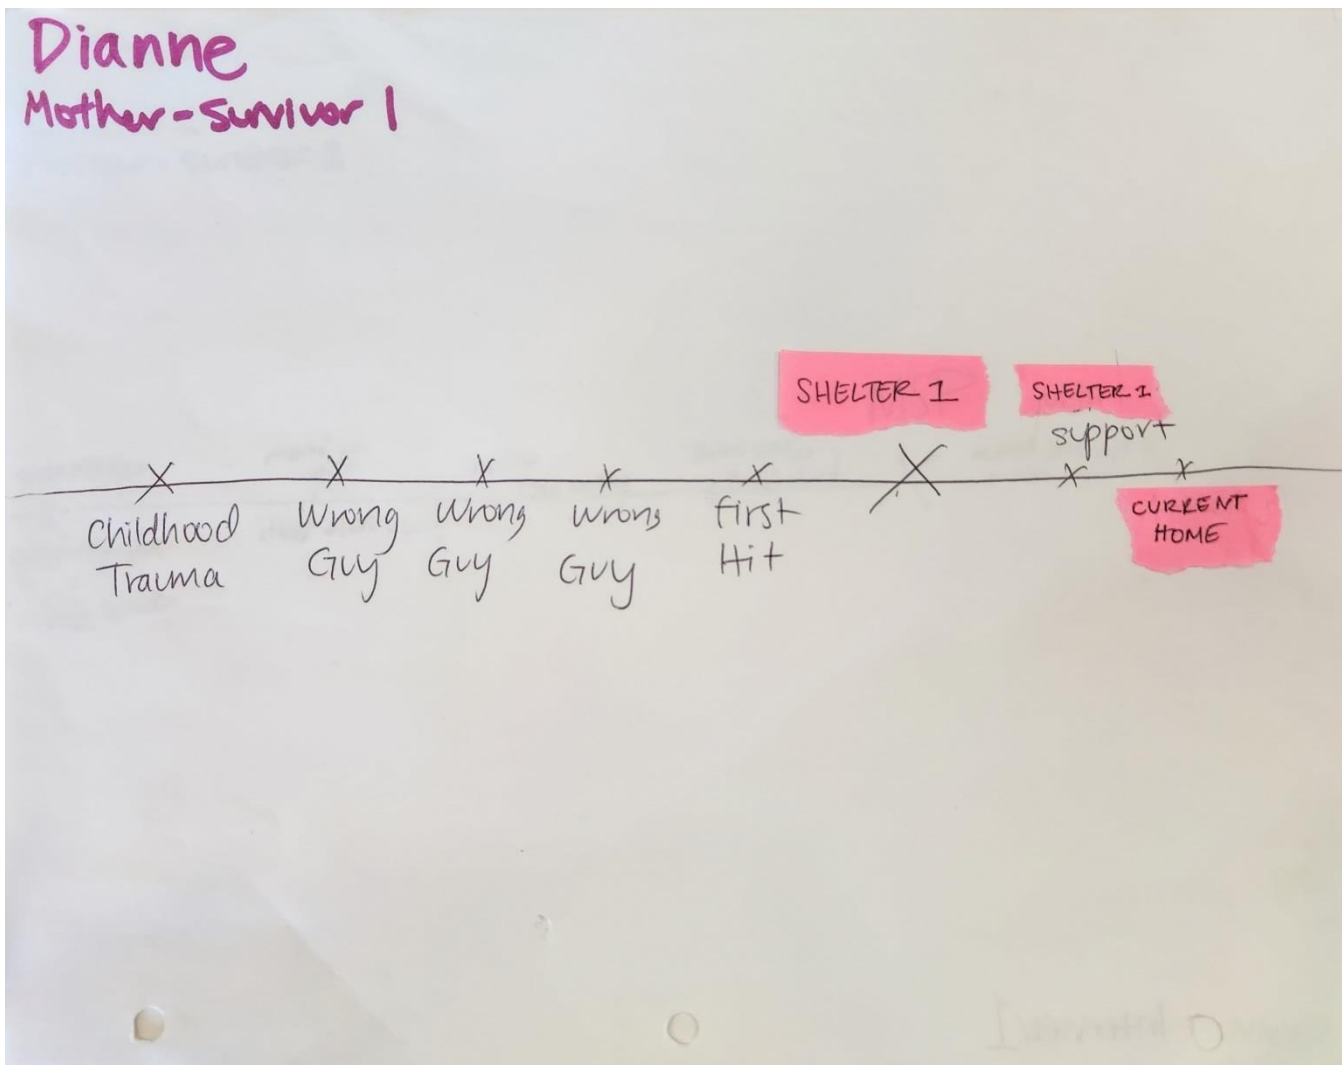 Dianne
Mother-Survivor 1
SHELTER 1
SHELTER 1
support
Childhood
Trauma
Wrong
Guy
Wrong
Guy
Wrong
Guy
First
Hit
CURRENT
HOME